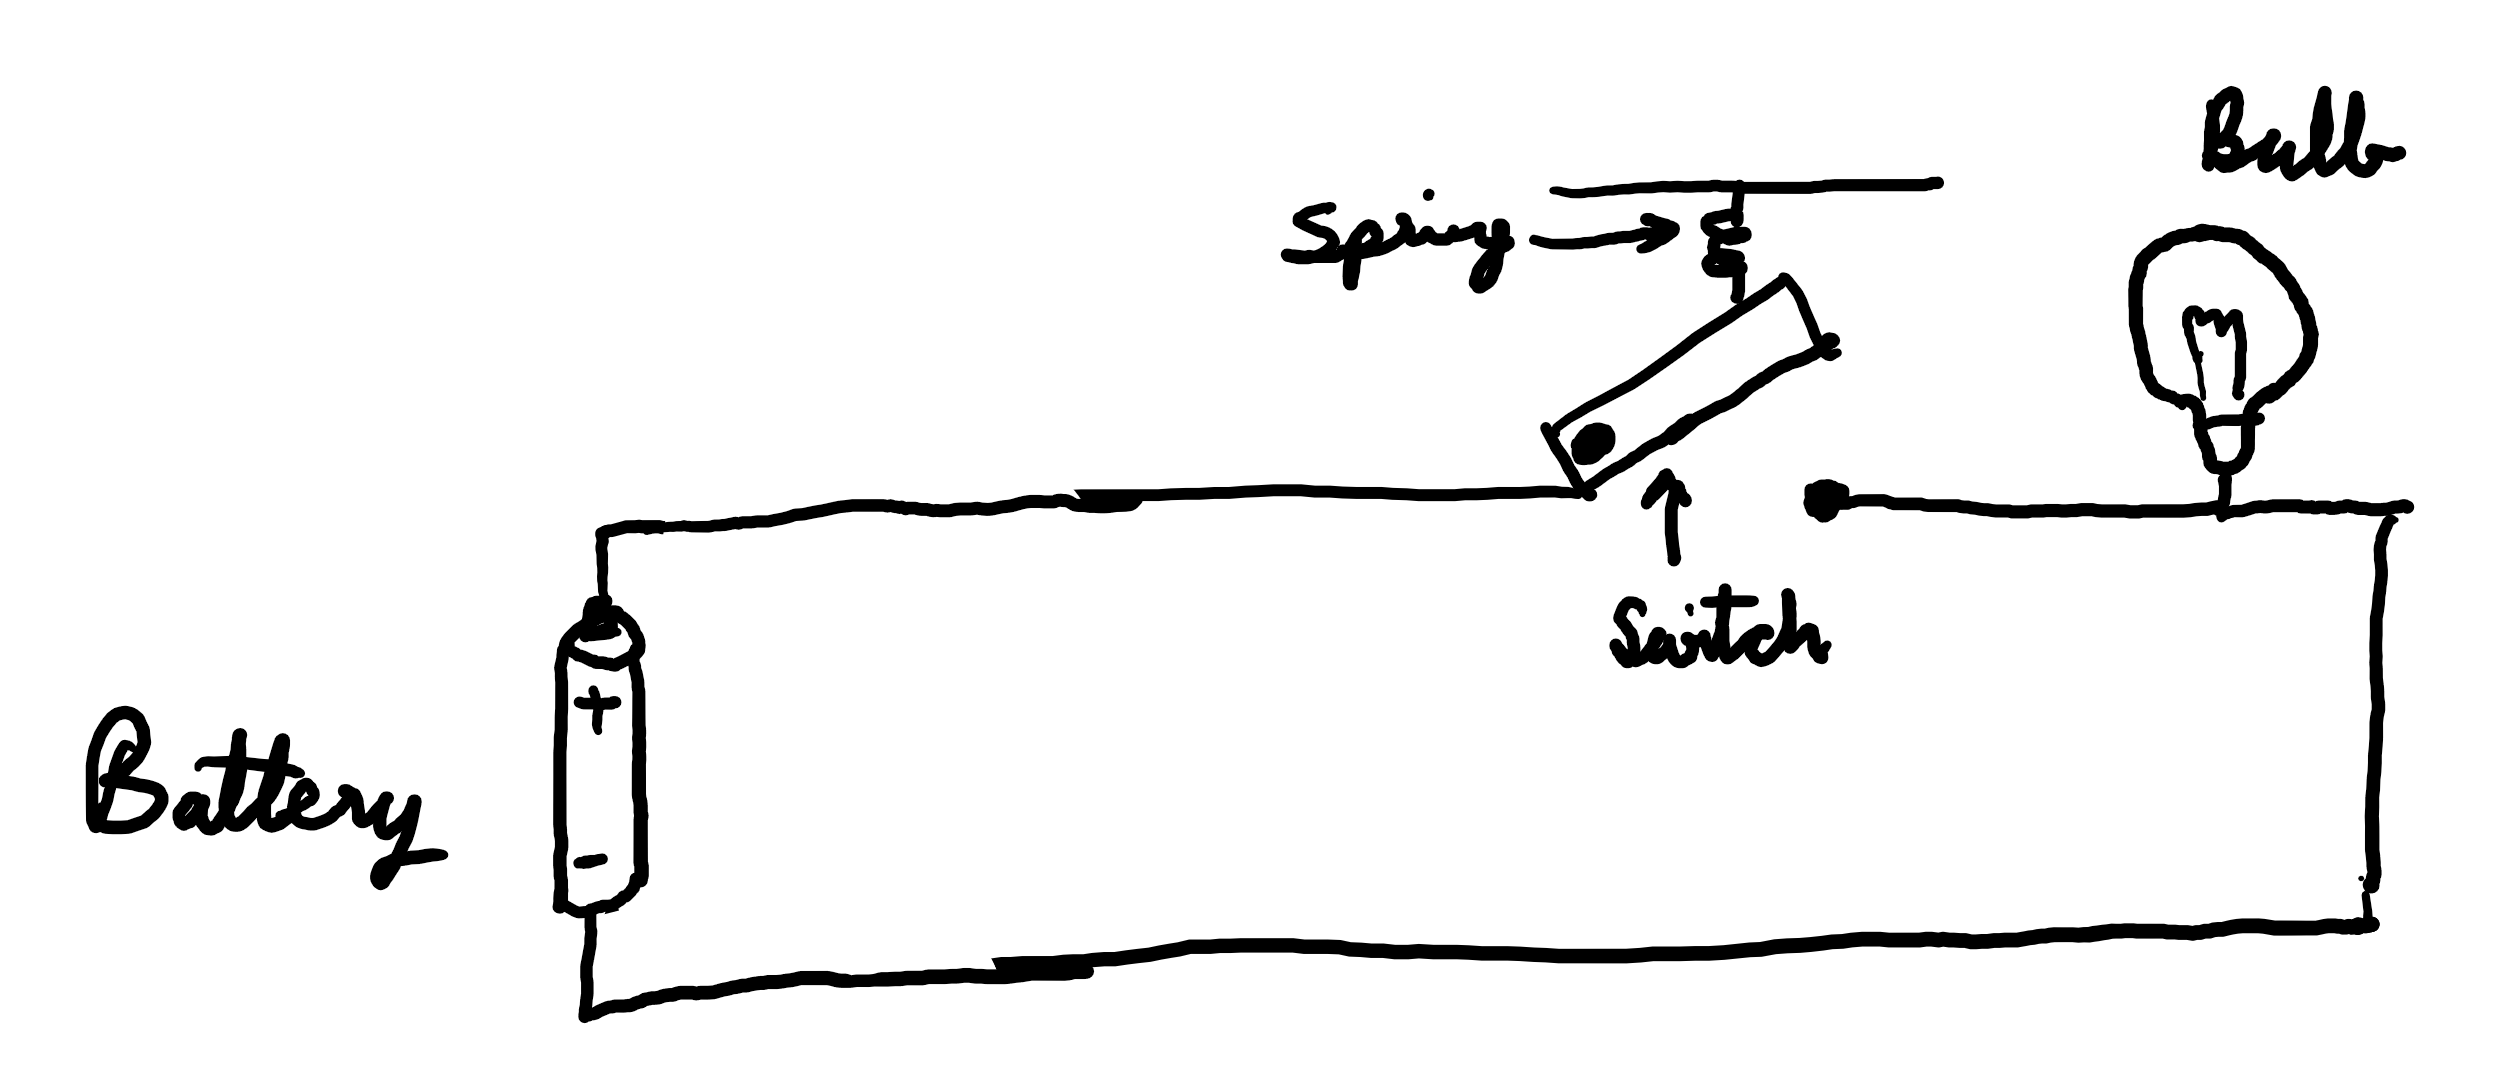 Bulb
Spring
Switch
+
Battery
-